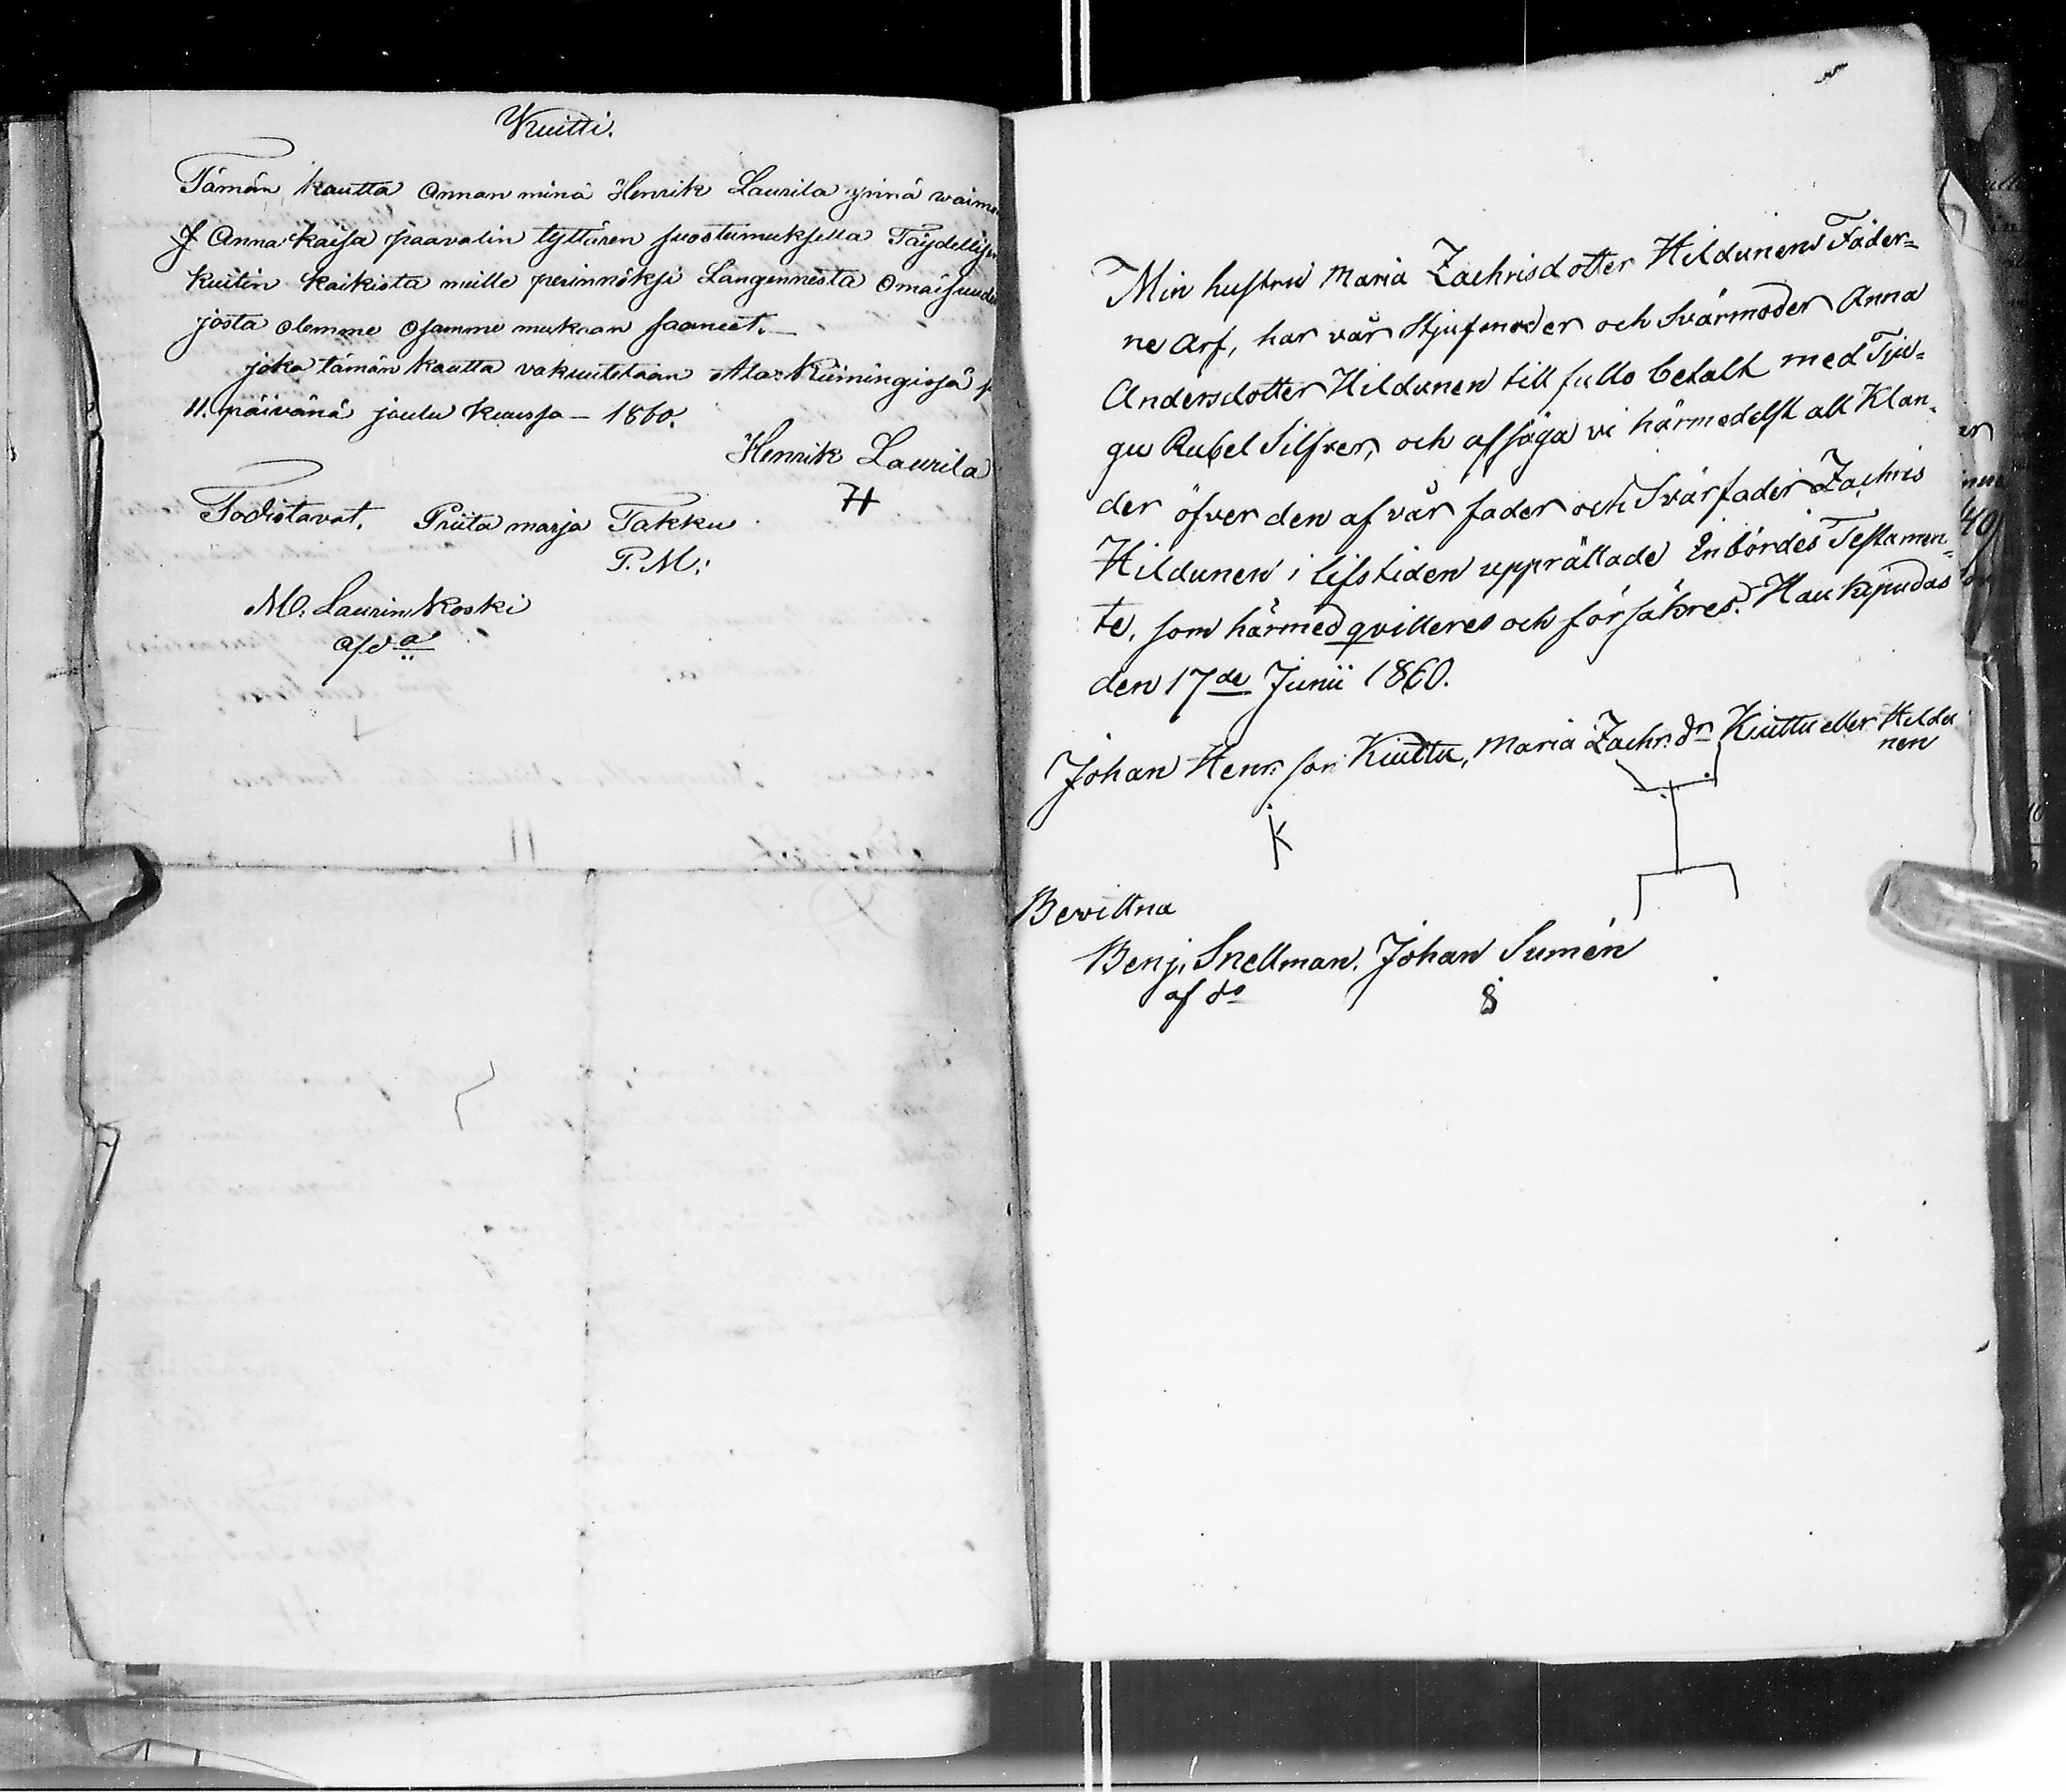 Kuitti.
Tämän kautta Annan minä Henrik Laurila ynnä waimo
Anna Kaisa paavalin tyttären suostumuksella Täydellisen
kuitin kaikista meille perinnöksi Langennesta Omaisuude
josta olemme Osamme mukaan saaneet.
joka tämän kautta vakuutetaan Ala-Kiimingissä
11. päivänä joulu kuussa – 1860.
Henrik Laurila
H
Todistavat. Priita marja Takku
P. M:
M. Laurin koski
Min hustru Maria Zachrisdotter Hildunens Fäder=
ne Arf, har vår Stjufmoder och Svärmoder Anna
Andersdotter Hildunen till fullo betalt med Tju=
gu Rubel Silfver, och afsäga vi härmedelst all Klan=
der öfver den af vår fader och Svärfader Zachris
Hildunen i lifstiden upprättade Inbördes Testamen=
te, som härmed qvitteres och försäkres. Haukipudas
den 17de Junii 1860.
Johan Henr. son Kiuttu, Maria Zachr. dr Kiuttu eller Hildu
nen
K
Bevittna
Benj. Snellman. Johan Sumén
af do S